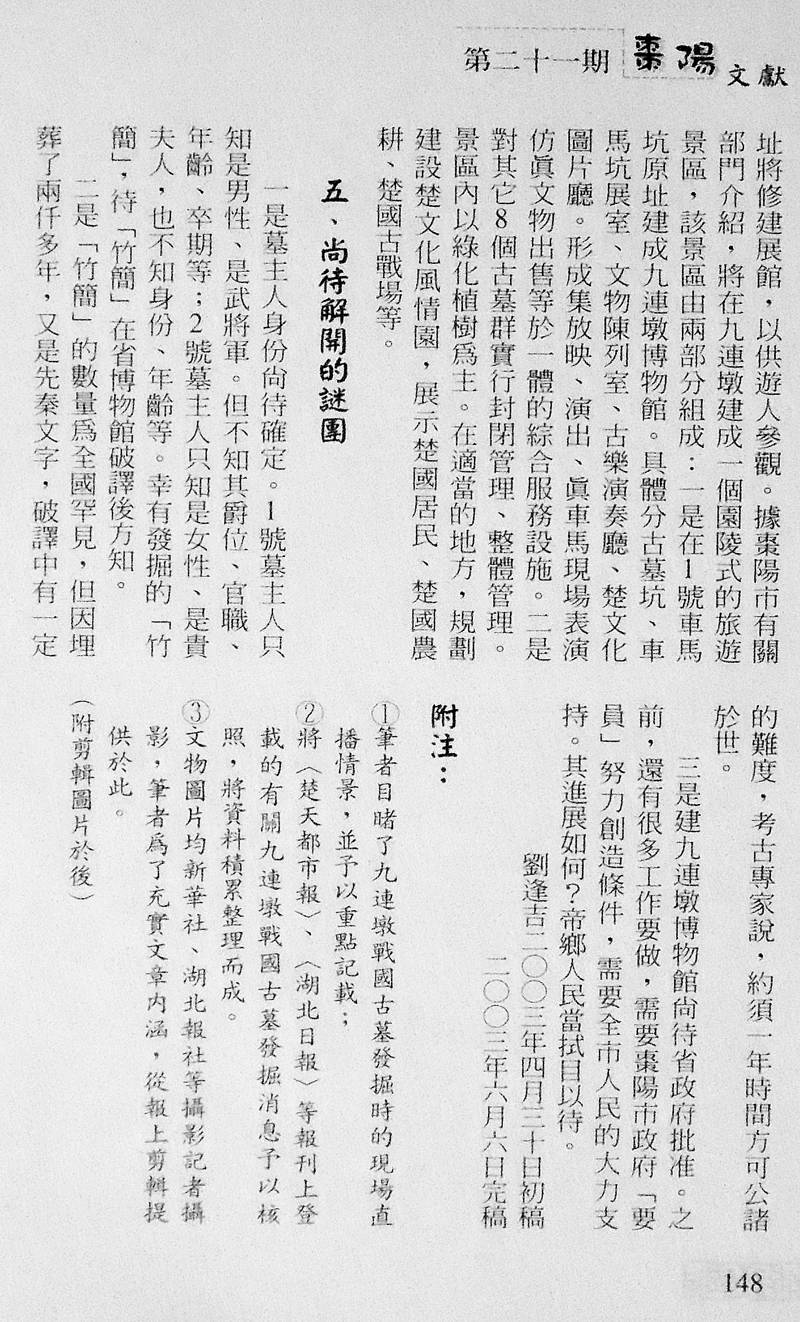 第二十一期 棗陽文獻
址將修建展館，以供遊人參觀。據棗陽市有關
部門介紹，將在九連墩建成一個園陵式的旅遊
景區，該景區由兩部分組成：一是在1號車馬
坑原址建成九連墩博物館。具體分古墓坑、車
馬坑展室、文物陳列室、古樂演奏廳、楚文化
圖片廳。形成集放映、演出、眞車馬現場表演
仿眞文物出售等於一體的綜合服務設施。二是
對其它8個古墓群實行封閉管理、整體管理。
景區內以綠化植樹爲主。在適當的地方，規劃
建設楚文化風情園，展示楚國居民、楚國農
耕、楚國古戰場等。
五、尚待解開的謎團
一是墓主人身份尚待確定。1號墓主人只
知是男性、是武將軍。但不知其爵位、官職、
年齡、卒期等；2號墓主人只知是女性、是貴
夫人，也不知身份、年齡等。幸有發掘的「竹
簡」，待「竹簡」在省博物館破譯後方知。
二是「竹簡」的數量爲全國罕見，但因埋
葬了兩仟多年，又是先秦文字，破譯中有一定
的難度，考古專家說，約須一年時間方可公諸
於世。
三是建九連墩博物館尚待省政府批准。之
前，還有很多工作要做，需要棗陽市政府「要
員」努力創造條件，需要全市人民的大力支
持。其進展如何？帝鄉人民當拭目以待。
劉逢吉二〇〇三年四月三十日初稿
二〇〇三年六月六日完稿
附注：
①筆者目睹了九連墩戰國古墓發掘時的現場直
播情景，並予以重點記載；
②將〈楚天都市報〉、〈湖北日報〉等報刊上登
載的有關九連墩戰國古墓發掘消息予以核
照，將資料積累整理而成。
③文物圖片均新華社、湖北報社等攝影記者攝
影，筆者爲了充實文章內涵，從報上剪輯提
供於此。
（附剪輯圖片於後）
148